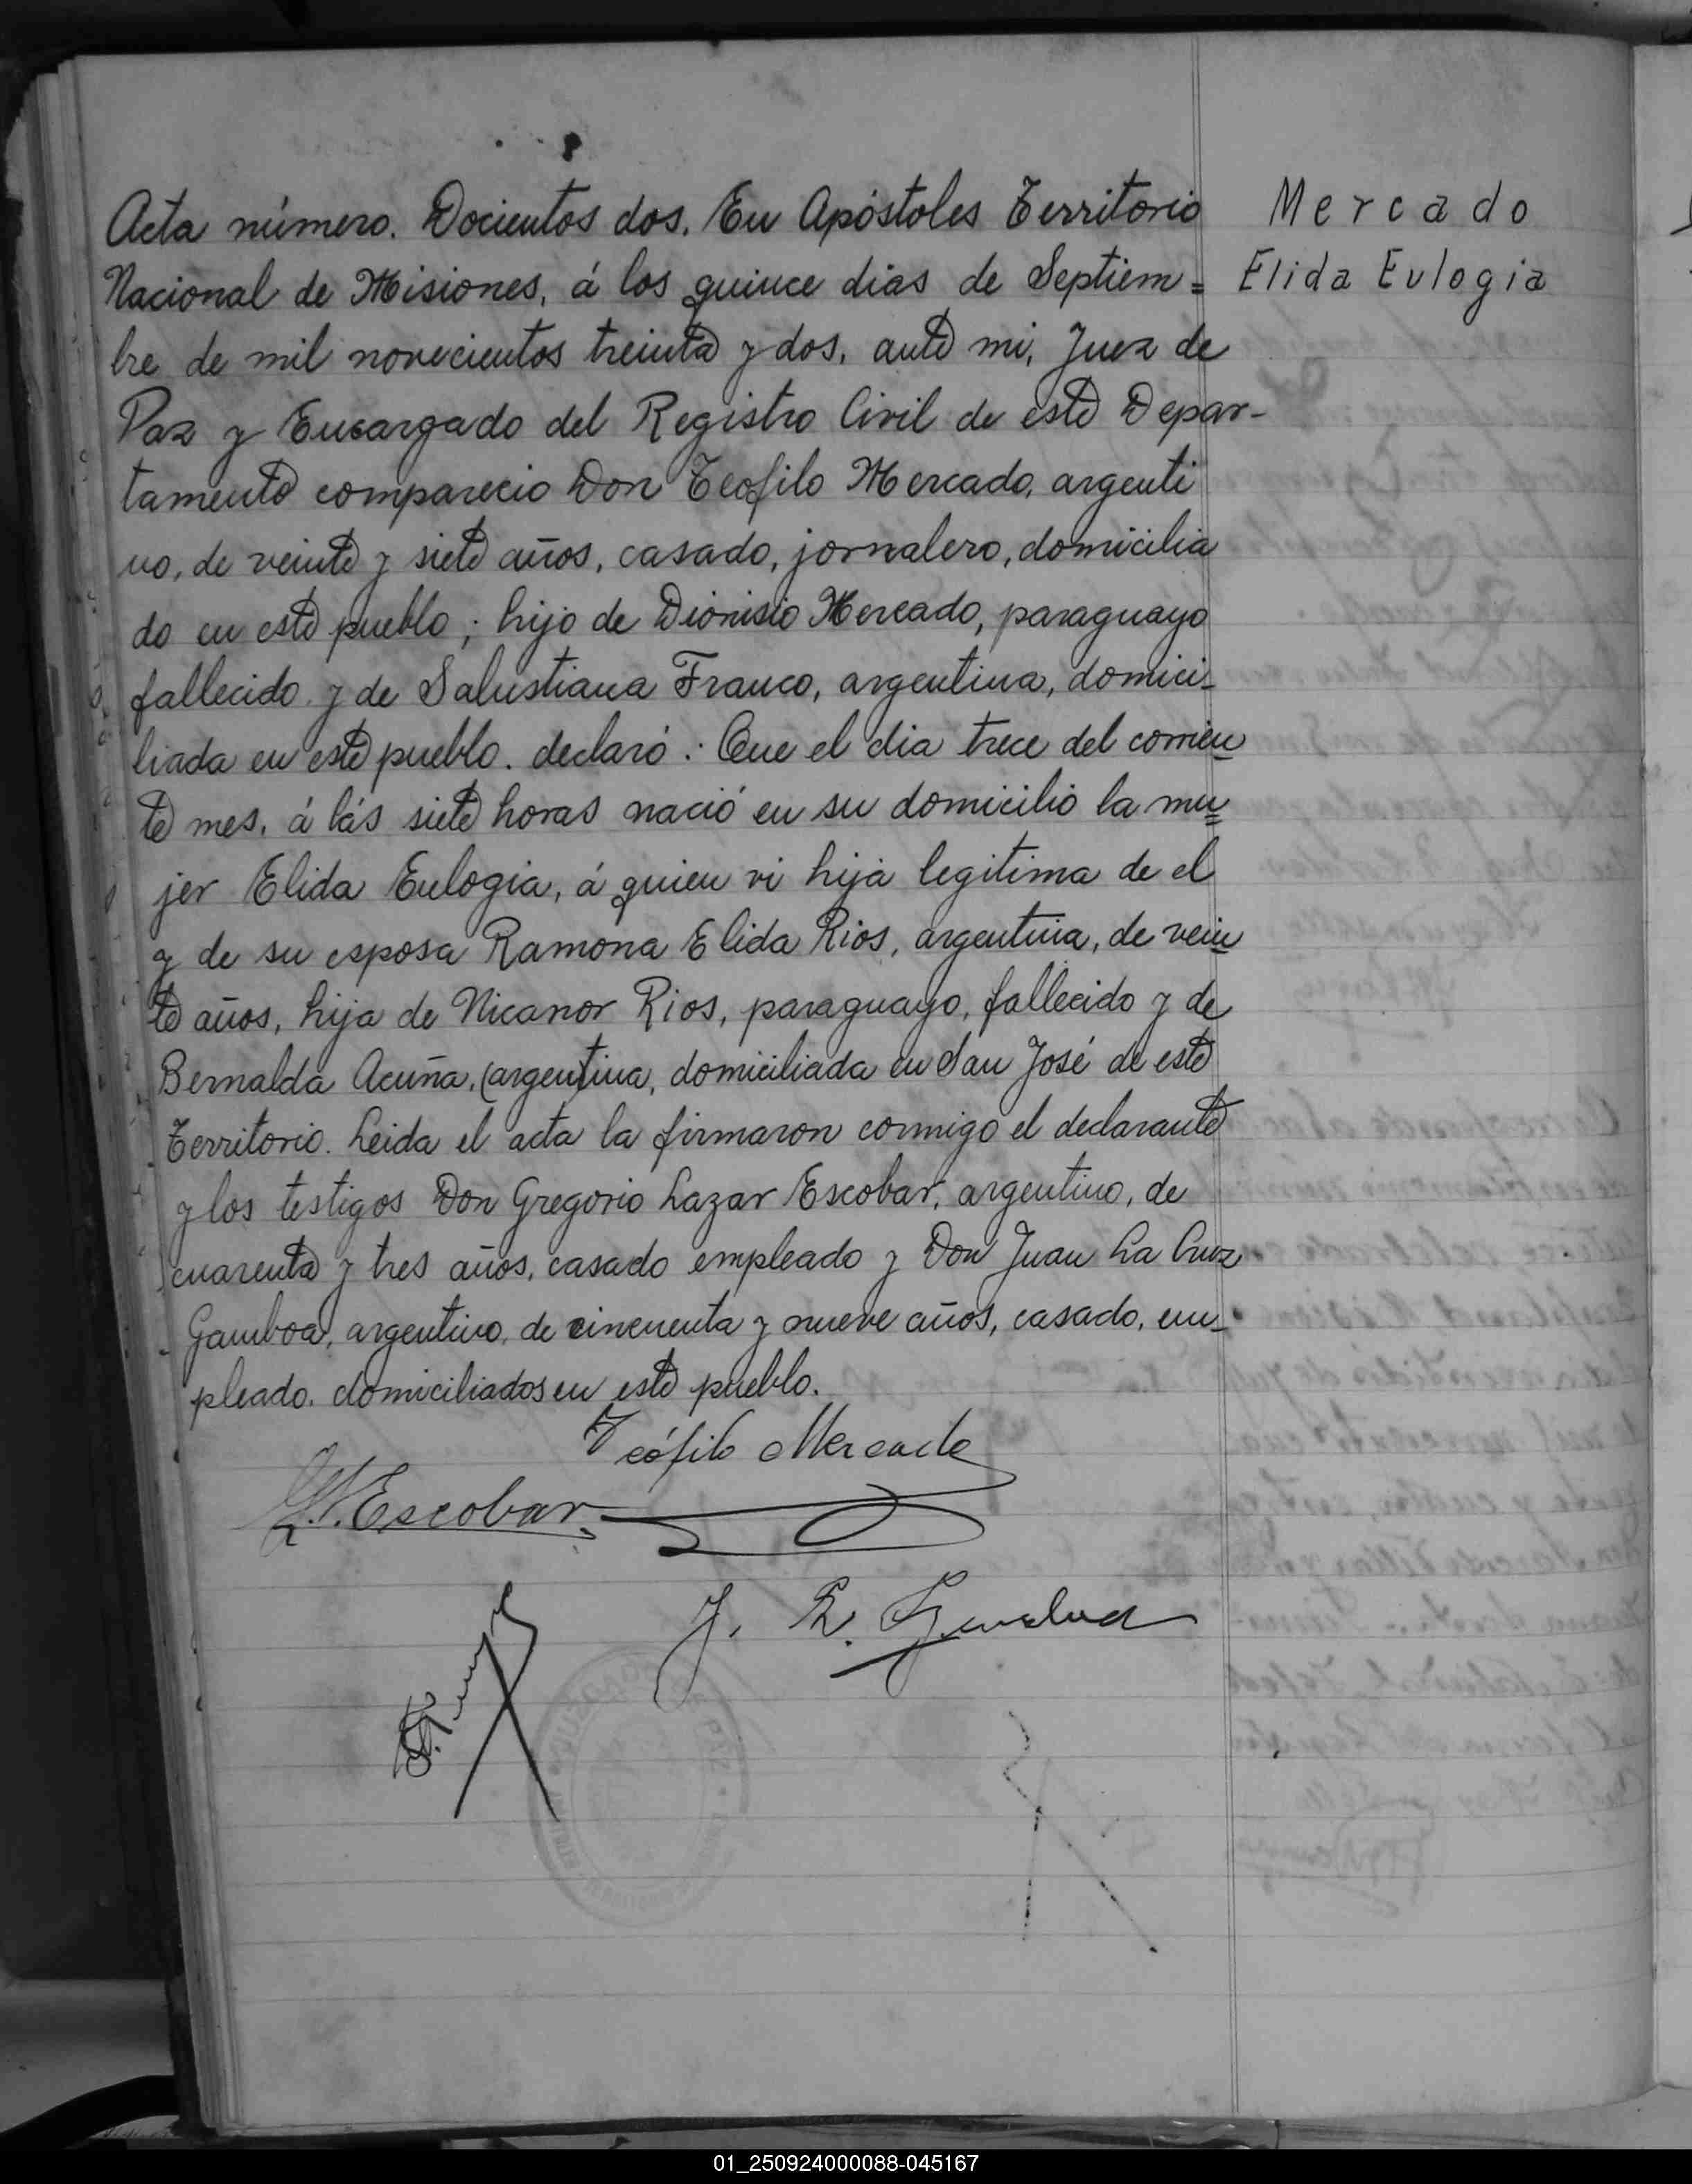 Acta número. Docientos dos. En Apóstoles Territorio
Nacional de Misiones, á los quince dias de Septiem=
bre de mil novecientos treinta y dos, ante mi, Juez de
Paz y Encargado del Registro Civil de este Depar-
tamento comparecio Don Teofilo Mercado, argenti
no, de veinte y siete años, casado, jornalero, domicilia
do en este pueblo; hijo de Dionisio Mercado, paraguayo
fallecido y de Salustiana Franco, argentina, domici-
liada en este pueblo. declaró: Que el dia trece del corrien
te mes, á las siete horas nació en su domicilio la mu=
jer Elida Eulogia, á quien vi hija legitima de el
y de su esposa Ramona Elida Rios, argentina, de vein
te años, hija de Nicanor Rios, paraguayo, fallecido y de
Bernalda Acuña, (argentina, domiciliada en San José de este
Territorio. Leida el acta la firmaron conmigo el declarante
y los testigos Don Gregorio Lazar Escobar, argentino, de
cuarenta y tres años, casado empleado y Don Juan La Cruz
Gamboa, argentino, de cincuenta y nueve años, casado, em-
pleado. domiciliados en este pueblo.
Teófilo Mercado
Escobar
J.
JUZGADO DE PAZ
Mercado
Elida Eulogia
01_250924000088-045167